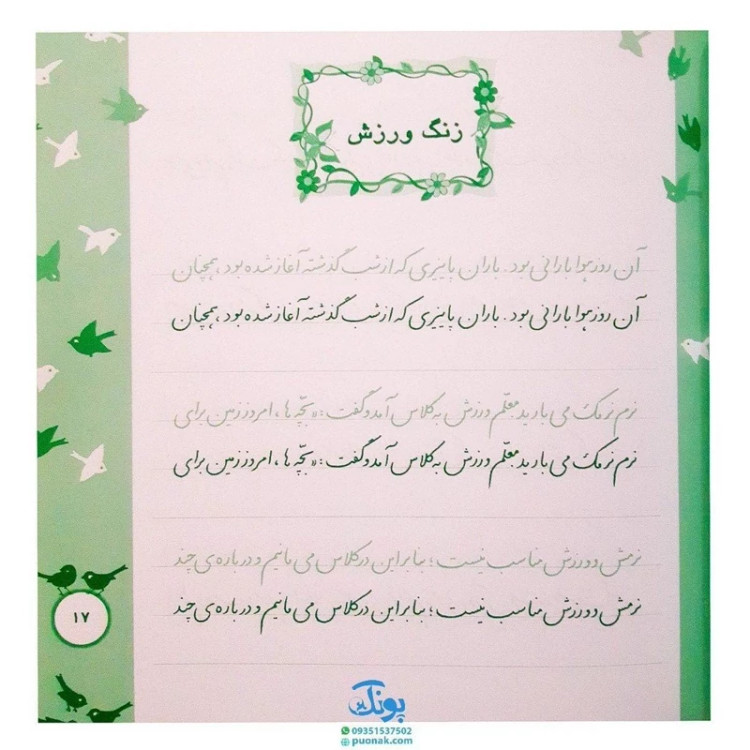 زنگ ورزش
آن روز هوا بارانی بود. باران پاییزی که از شب گذشته آغاز شده بود، همچنان
آن روز هوا بارانی بود. باران پاییزی که از شب گذشته آغاز شده بود، همچنان
نرم نرمک می بارید. معلّم ورزش به کلاس آمد و گفت: «بچّه ها، امروز زمین برای
نرم نرمک می بارید. معلّم ورزش به کلاس آمد و گفت: «بچّه ها، امروز زمین برای
نرمش و ورزش مناسب نیست؛ بنابراین در کلاس می مانیم و درباره ی چند
نرمش و ورزش مناسب نیست؛ بنابراین در کلاس می مانیم و درباره ی چند
۱۷
پونک
09351537502
puonak.com